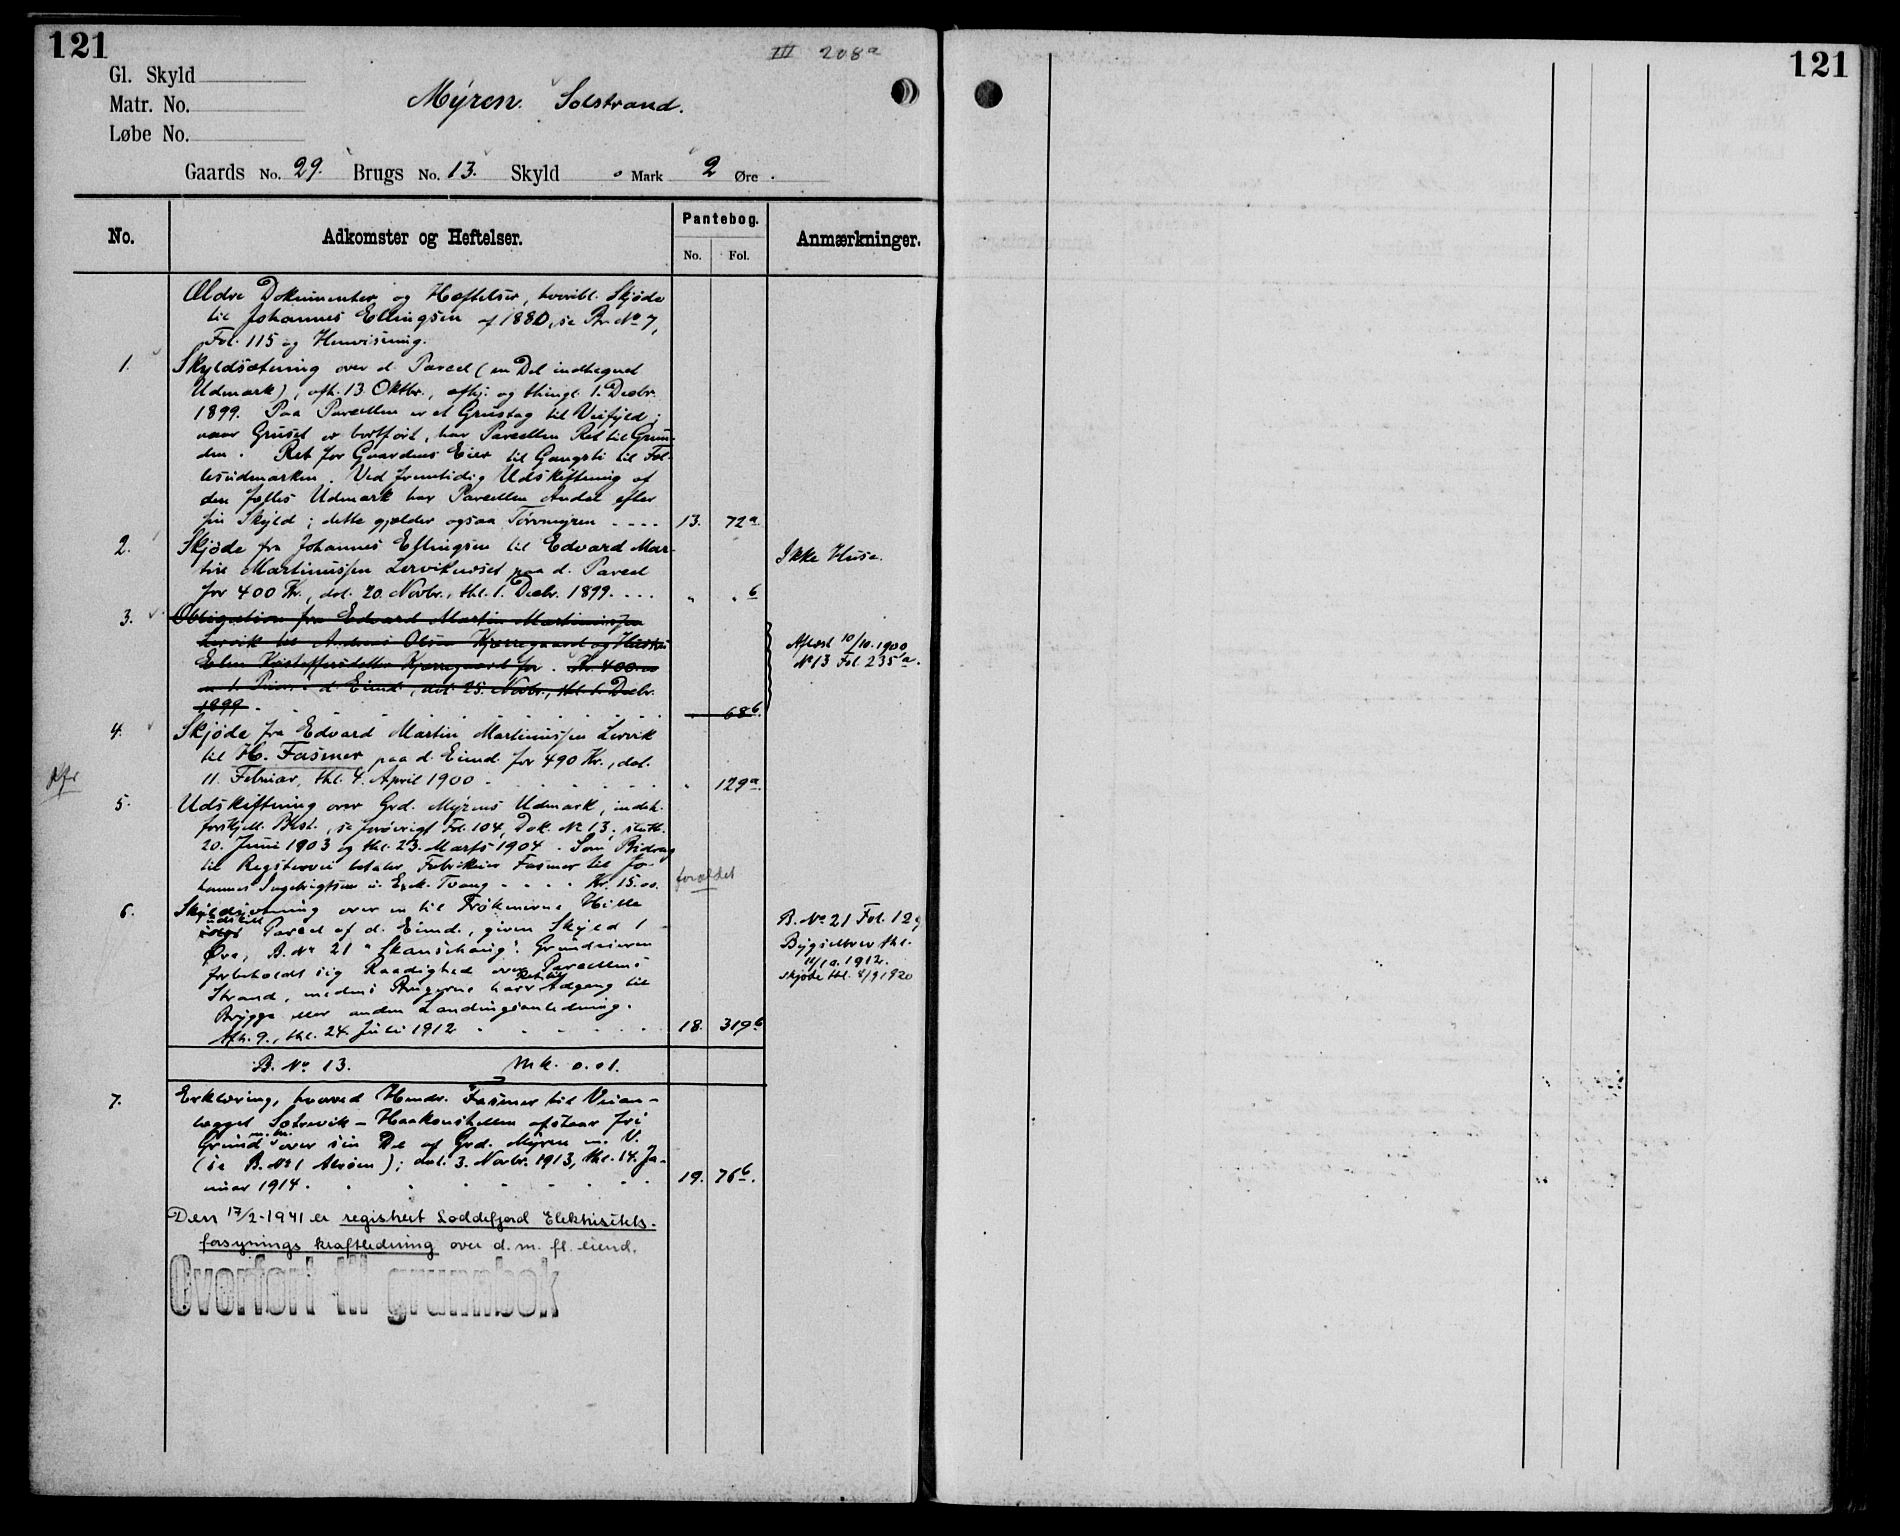 121
III 208a
Gl. Skyld
Matr. No.
Løbe No.
Mýren. Solstrand.
Gaards No. 29. Brugs No. 13. Skyld 0 Mark 2 Øre.
No. Adkomster og Heftelser. Pantebog. No. Fol. Anmærkninger.
Ældre Dokumenter og Hæftelser, hvoribl. Skjøde
til Johannes Ellingsen af 1880, se Br. No 7,
Fol. 115 og Henvisning.
1. Skyldsætning over d. Parcel (en Del indhegnet
Udmark), afh. 13 Oktbr., afhj. og thingl. 1. Decbr.
1899. Paa Parcellen er et Grustag til Veifyld;
naar Gruset er bortført, har Parcellen Ret til Grun-
den. Ret for Gaardens Eier til Gangsti til Fæl-
lesudmarken. Ved fremtidig Udskiftning af
den fælles Udmark har Parcellen Andel efter
sin Skyld; dette gjælder ogsaa Torvmyren - - - - 13. 72a
2. Skjøde fra Johannes Ellingsen til Edvard Mar-
tin Martinussen Lerviknæset paa d. Parcel
for 400 Kr., dat. 20. Novbr., thl. 1. Decbr. 1899. - - - „ „ b
Ikke Huse.
3. Obligation fra Edvard Martin Martinussen
Lervik til Andreas Olsen Kjærregaard og Hustru
Elen Kristoffersdatter Kjærregaard for. Kr. 400.00
m 1. Prior. i d. Eiend., dat. 25. Novbr., thl. 1. Decbr.
1899 - 68b.
Aflæst 10/10.1900,
No 13 Fol. 235a.
4. Skjøde fra Edvard Martin Martinussen Lervik
til H. Fasmer paa d. Eiend. for 490 Kr., dat.
11. Februar, thl. 4. April 1900 „ 129a
5. Udskiftning over Grd. Mýrens Udmark, indeh.
forskjell. Best., se forøvrigt Fol. 104, Dok. No 13, slutt.
20. Juni 1903 og thl. 23. Marts 1904. Som Bidrag
til Regstervei betaler Fabrikeier Fasmer til Jo-
hannes Ingebrigtsen u. Exek. Tvang - - - - Kr. 15.00. forældet
6. Skyldsætning over en til Frøknerne Hille
udskilt Parcel af d. Eiend., given Skyld 1
Øre, B. No 21 "Skansehaug". Grundeieren
forbeholdt sig Raadighed over Parcellens
Strand, medens Brugerne har Ret til Adgang til
Brygge eller anden Landingsanledning.
Afh. 9., thl. 24. Juli 1912 18. 319b
B. No 21 Fol. 129
Bygselbrev thl.
11/10. 1912.
Skjøte thl. 8/9 1920
B. No 13. Mk. 0.01.
7. Erklæring, hvorved Hendr. Fasmer til Veian-
lægget Sotrevik - Haakonshellen afstaar fri
Grund m. m. over sin Del af Grd. Mýren m. V.
(se B. No 1 Alsøen); dat. 3. Novbr. 1913, thl. 14. Ja-
nuar 1914. 19. 76b.
Den 17/2-1941 er registrert Loddefjord Elektrisitets-
forsynings kraftledning over d. m. fl. eiend.
Overført til grunnbok
121